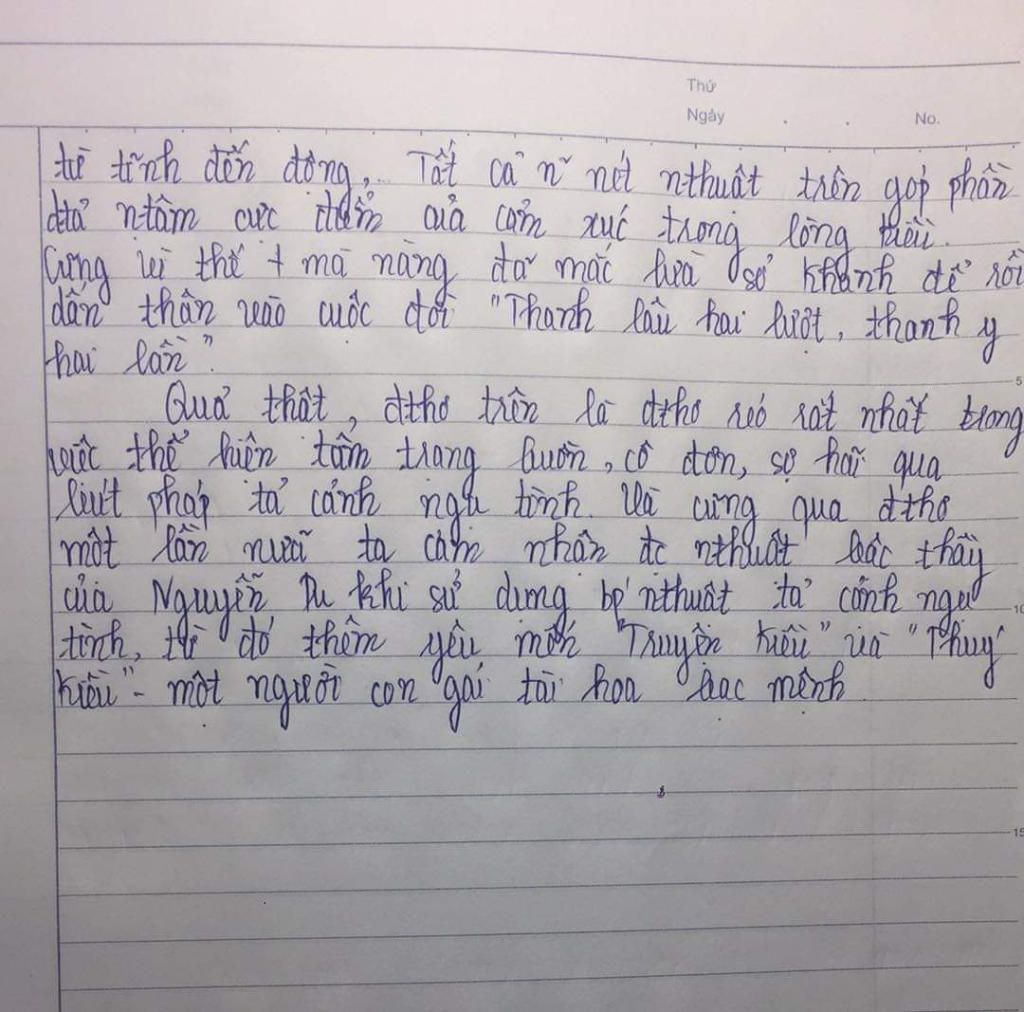 Thứ
Ngày . . No.
từ tĩnh đến động,.. Tất cả n~ nét nthuật trên góp phần
dtả ntâm cực điểm của cảm xúc trong lòng Kiều.
Cũng vì thế + mà nàng đã mắc lừa sở Khanh để rồi
dấn thân vào cuộc đời "Thanh lâu hai lượt, thanh y
hai lần".
5
Quả thật, đthơ trên là đthơ réo rắt nhất trong
việc thể hiện tâm trạng buồn, cô đơn, sợ hãi qua
bút pháp tả cảnh ngụ tình. Và cũng qua đthơ
một lần nữa ta cảm nhận đc nthuật bậc thầy
của Nguyễn Du khi sử dụng bp nthuật tả cảnh ngụ
10
tình, từ đó thêm yêu mến "Truyện Kiều" và "Thuý
Kiều" - một người con gái tài hoa bạc mệnh.
15